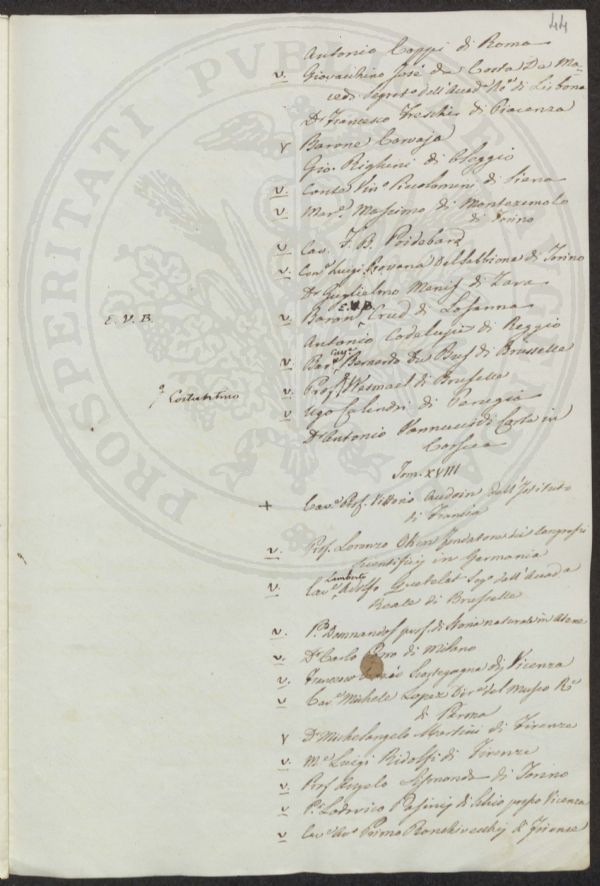 44
Antonio Coppi di Roma
v. Giovacchino José da Costa De Ma=
cedo Segreto dell'Accad.a R.e di Lisbona
Dr Francesco Freschi di Piacenza
v Barone Corvaja
Gio. Righini di Oleggio
v. Conte Piccolomini di Siena
v. Mar.e Massimo di Montezemolo
di Torino
v. Cav. F. B. Poidebard
v. Con.e Luigi Rovana Dellabbiona di Torino
Dr Guglielmo Menis di Zara
E. V. B.
E. V. B. v. Baron Crud di Losanna
Antonio Codelupi di Reggio
v. Bar.e Bernardo Du Bus di Brusselle
q Costantino v. Prof. Wesmael di Bruselle
v. Ugo Calindri di Perugia
Dr Antonio Vannucci di Corte in
Corsica
Tom. XVIII
+ Cav.e Prof. Vittorio Audoin dell'Istituto
di Francia
v. Prof. Lorenzo Oken fondatore dei Congressi
scientifici in Germania
Lamberto
v. Cav.e Adolfo Quetelet Seg.o dell'Accad.a
Reale di Brusselle
v. Domnandos prof. di Storia naturale in Atene
v. Dr Carlo di Milano
v. Francesco Scortegagna di Vicenza
v. Cav.e Michele Lopez Dir.e del Museo R.e
di Parma
v Dr Michelangelo Martini di Firenze
v. M.e Luigi Ridolfi di Firenze
v. Prof. Angelo Sismonda di Torino
v. P.e Lodovico Pasini di Schio presso Vicenza
v. Cav. Primo Ronchivecchi di Firenze
PROSPERITATI PUBLICAE AUGENDAE